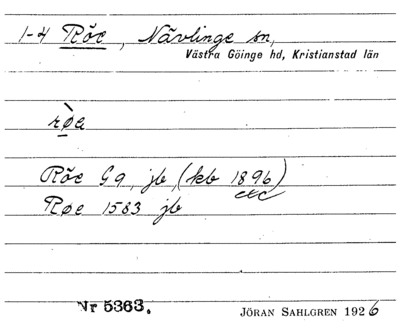 1-4 Röe, Nävlinge sn,
Västra Göinge hd, Kristianstad län
røa
Röe G9, jb, (kb 1896)
etc
Røe 1583 jb
Nr 5363.
JÖRAN SAHLGREN 1926